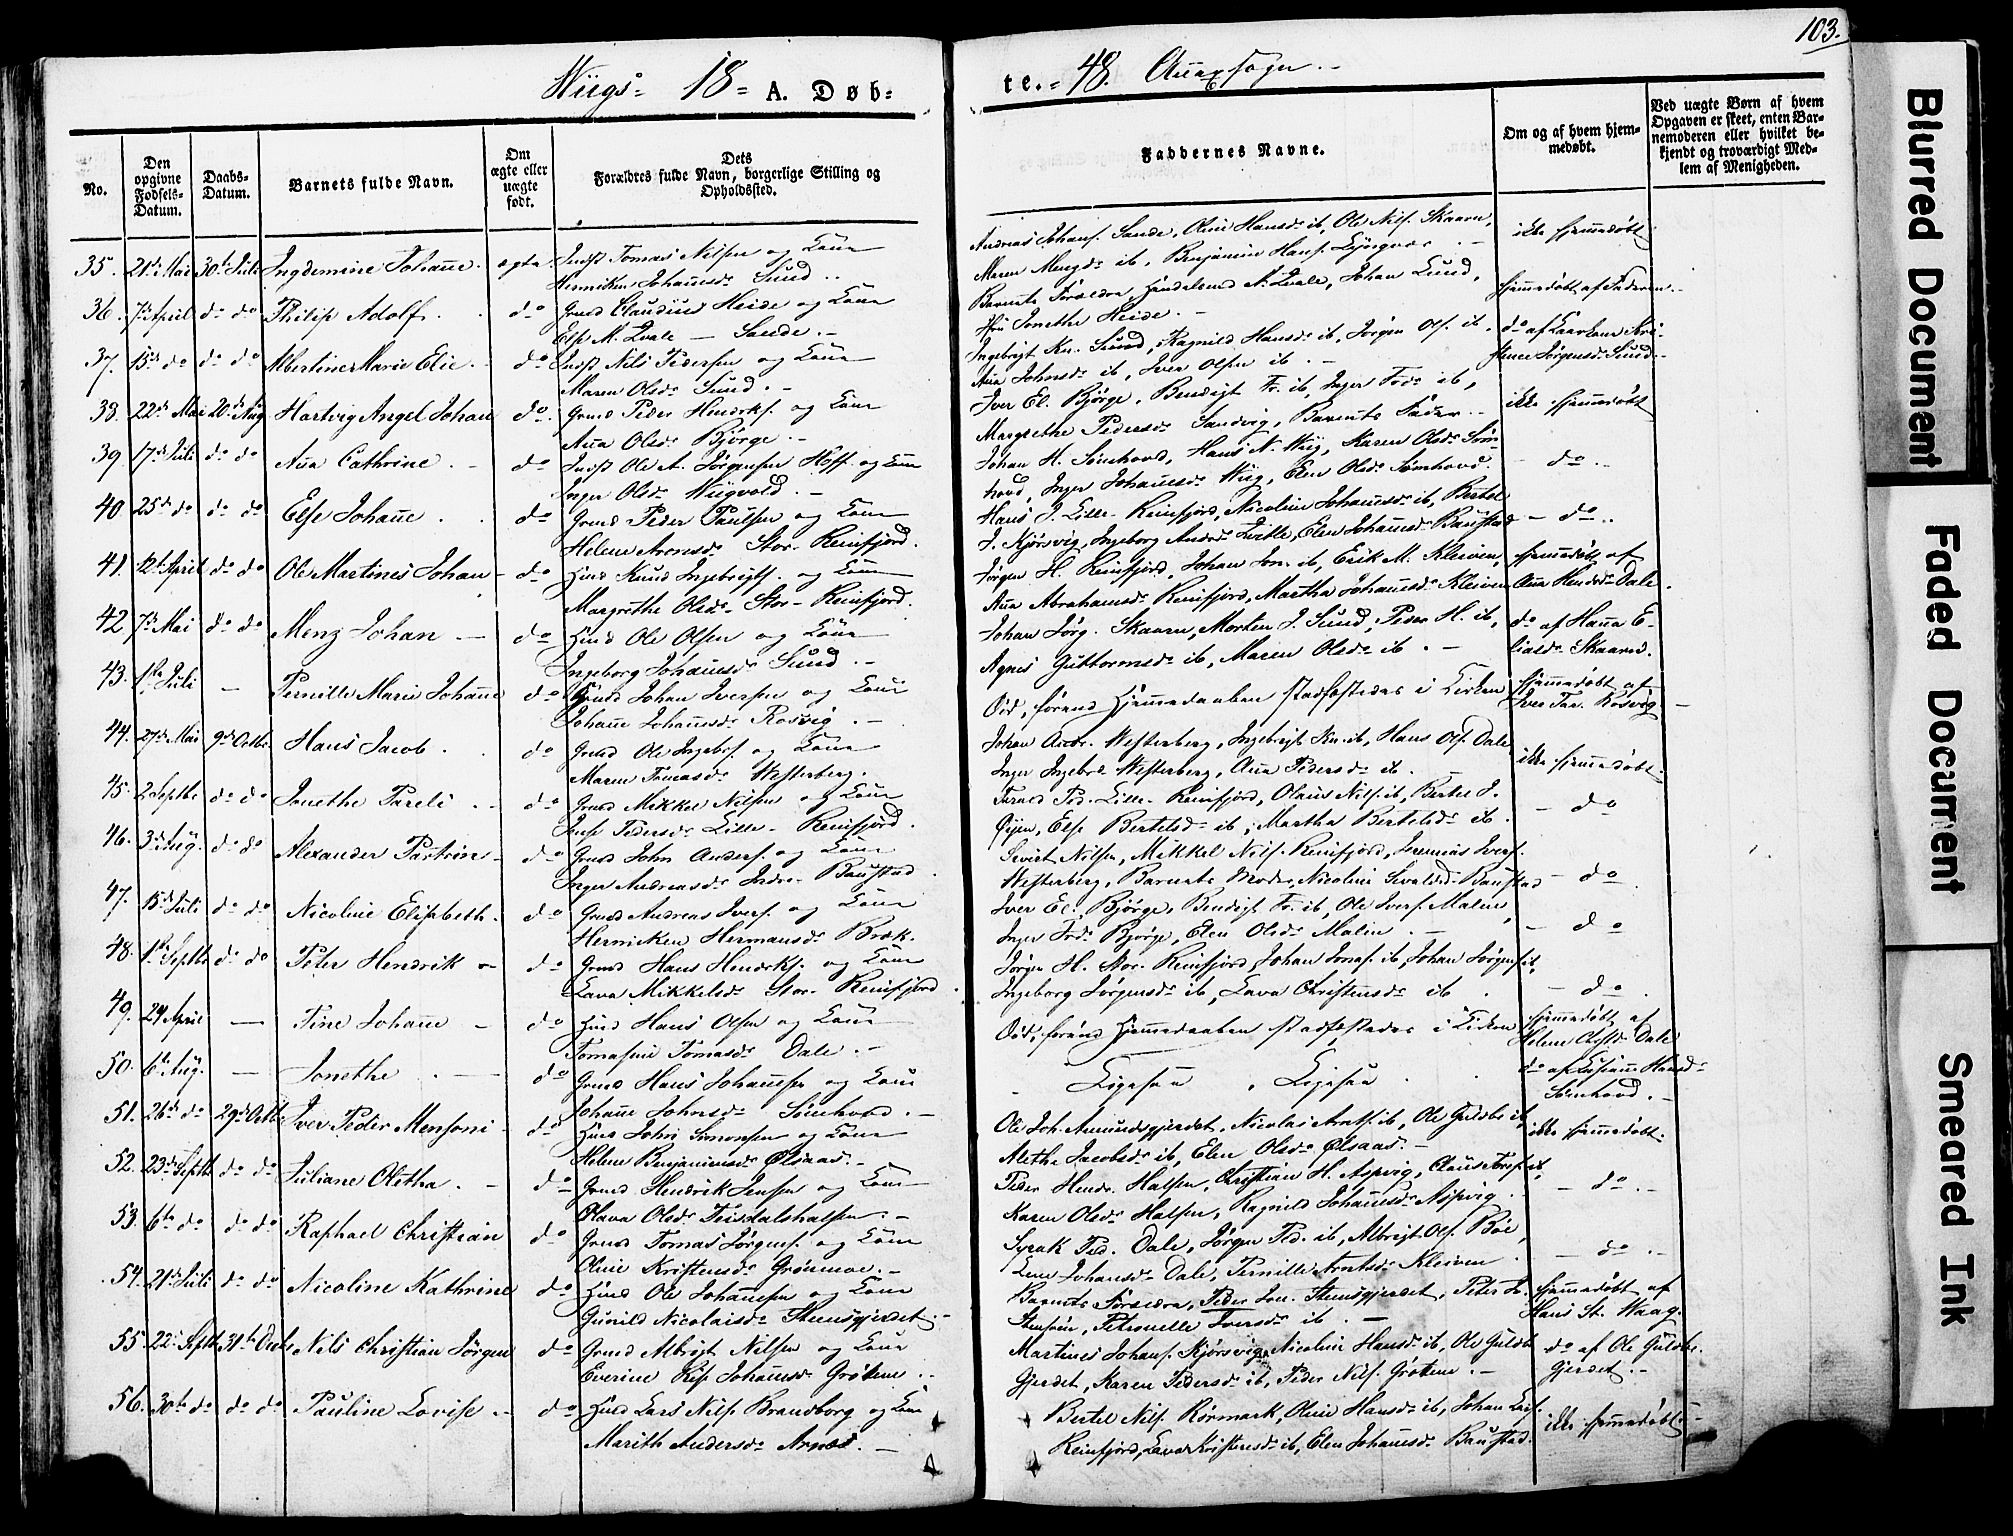 103.
Wiigs- 18- A. Døb-
te. 48. Annexsogn.
No.
Den opgivne Fødsels-Datum.
Daabs-Datum.
Barnets fulde Navn.
Om ægte eller uægte født.
Dets Forældres fulde Navn, borgerlige Stilling og Opholdssted.
Faddernes Navne.
Om og af hvem hjem-
medøbt.
Ved uægte Børn af hvem
Opgaven er skeet, enten Bar-
nemoderen eller hvilket be-
kjendt og troværdigt Med-
lem af Menigheden.
35. 21de Mai 30te Juli Ingdemine Johanne. ægte. Indst Tomas Nilsen og Kone
Hennicken Johannesd. Sund.
Andreas Johans. Sande, Oline Hansd. ib, Ole Nils. Skaaren,
Maren Mengsd. ib, Benjamin Hans. Lyngvær.
ikke hjemmedøbt
36. 7de April do do Philip Adolf. do Gmd Claudius Heide og Kone
Else M. Qvale - Sande.
Barnets Forældre, Handelsmd A. Qvale, Johan Sund,
Fru Jonethe Heide.
hjemmedøbt af Faderen.
37. 15de do do do Albertine Marie Elie. do Indst Nils Pedersen og Kone
Maren Olsd. Sund.
Ingebrigt Kn. Sund, Ragnild Hansd. ib, Jørgen Ols. ib,
Ana Johnsd. ib, Iver Olsen ib.
do af Jørgensd. Sund.
38. 22de Mai 20de Aug Hartvig Angel Johan do. Gmd Peder Henrks. og Kone
Ana Olsd. Bjørge.
Iver El. Bjørge, Bendigt Fr. ib, Inger Frd. ib,
Margrethe Pedersd. Sandvig, Barnets Fader.
ikke hjemmedøbt
39. 17de Juli do do Ana Cathrine. do Indst Ole A. Jørgensen Hoff og Kone
Inger Olsd. Wiigvold.
Johan H. Sømhovd, Hans N. Wiig, Karen Olsd. Søm-
hovd, Inger Johannesd. Wiig, Elen Olsd. Sømhovd.
do
40 25de do do do Else Johanne. do Gmd Peder Paulsen og Kone
Helene Arnesd. Stor-Reinfjord.
Hans J. Lille-Reinfjord, Nicoline Johannesd. ib, Bertel
J. Kjørsvig, Ingeborg Andrd. Tvitle, Elen Johannesd. Baustad
do
41. 12te April do do Ole Martines Johan do Hmd Knud Ingebrigts. og Kone
Margrethe Olsd. Stor-Reinfjord.
Jørgen H. Reinfjord, Johan Jon. ib, Erik M. Kleiven,
Ana Abrahamsd. Reinfjord, Martha Johannesd. Kleiven
hjemmedøbt af
Ana Hendrd. Dale.
42 7de Mai do do Menz Johan do Hmd Ole Olsen og Kone
Ingeborg Johannesd. Sund.
Johan Jørg. Skaaren, Morten J. Sund, Peder H. ib,
Agnes Guttormsd. ib, Maren Olsd. ib.
do af Hanna E-
liasd. Skaaren.
43. 1ste Juli - Pernille Marie Johanne do Gmd Johan Iversen og Kone
Johanne Johannesd. Rosvig.
Død, førend Hjemmedaaben stadfæstedes i Kirken
hjemmedøbt af
Iver Tar. Rosvig.
44. 27de Mai 9de Octbr. Hans Jacob. do Gmd Ole Ingebr. og Kone
Maren Tomasd. Westerberg.
Johan Westerberg, Ingebrigt Kn. ib, Hans Ols. Dale,
Inger Ingebrd. Westerberg, Ana Pedersd. ib.
ikke hjemmedøbt.
45. 2 Septbr do do Jonethe Pareli. do Gmd Mikkel Nilsen og Kone
Pedersd. Lille-Reinfjord.
Ped. Lille-Reinfjord, Olaus Nils. ib, Bertel J.
Øyen, Else Bertelsd. ib, Martha Bertelsd. ib.
do
46. 3de Aug. do do Alexander Partrin do Gmd John Anders. og Kone
Inger Andreasd. Indre-Baustad.
Sivert Nilsen, Mikkel Nils. Reinfjord, Ivers.
Westerberg, Barnets Moder, Nicoline Sivaldsd. Baustad
do
47. 15de Juli do do Nicoline Elisabeth. do Gmd Andreas Ivers. og Kone
Hennicken Hermansd. Bræk.
Iver El. Bjørge, Bendigt Fr. ib, Ole Ivers. Malin,
Inger Frd. Bjørge, Elen Olsd. Malin.
do
48. 1ste Septbr do do Peter Hendrik do Gmd Hans Henrks. og Kone
Lava Mikkelsd. Stor-Reinfjord.
Jørgen H. Stor-Reinfjord, Johan Jons. ib, Johan Jørgens. ib,
Ingeborg Jørgensd. ib, Lava Christensd. ib.
do
49. 29 April - Tine Johanne do Hmd Hans Olsen og Kone
Tomasine Tomasd. Dale.
Død, førend Hjemmedaaben stadfæstedes i Kirken
hjemmedøbt af
Helene Dale
50. 6te Aug. - Jonethe. do Gmd Hans Johannesen og Kone
Johanne Johnsd. Sømhovd.
Ligesaa, Ligesaa
do af Hansd.
Sømhovd.
51. 26de do 29de Octbr Iver Peder Mensoni do Hmd John Simonsen og Kone
Helene Benjaminsd. Ølsaas.
Ole Joh. Amundsgjerdet, Nicolai Arnts. ib, Ole Guldbr. ib,
Alethe Jacobsd. ib, Elen Olsd. Ølsaas.
ikke hjemmedøbt.
52. 23de Septbr do do Juliane Oletha. do Gmd Hendrik Jensen og Kone
Olava Olsd. Teisdalshalsen.
Peder Hendr. Halsen, Christian H. Aspvig, ib,
Karen Olsd. Halsen, Ragnild Johannesd. Aspvig.
do
53. 6te do do do Raphael Christian do Gmd Tomas Jørgens. og Kone
Oline Kristensd. Grønmoe.
Syrak Ped. Dale, Jørgen Pd. ib, Albrigt Ols. Bøe,
Lene Johansd. Dale, Pernille Arntsd. Kleiven.
do
54. 21de Juli do do Nicoline Kathrine do Hmd Ole Johannesen og Kone
Gunild Nicolaisd. Stensgjerdet.
Barnets Forældre, Peder Jon. Stensgjerdet, Peter Jo.
Stensøen, Petronelle Iversd. ib.
hjemmedøbt af
Hans St. Waag.
55. 22de Sept 31te Decbr Nils Christian Jørgen do Gmd Albrigt Nilsen og Kone
Everine Johannsd. Grøtene.
Martines Johans. Kjørsvig, Nicoline Hansd. ib, Ole Guldbr.
Gjerdet, Karen Pedersd. ib, Peder Nils. Grøtene.
do af Ole Guldbr.
Gjerdet.
56. 30te do do do Pauline Lovise. do Hmd Lars Nils. Brandborg og Kone
Marith Andersd. Arnes.
Bertel Nils. Rørmark, Oline Hansd. ib, Johan Lars.
Reinfjord, Lava Kristensd. ib, Elen Johannesd. Baustad.
ikke hjemmedøbt.
Blurred Document
Faded Document
Smeared Ink